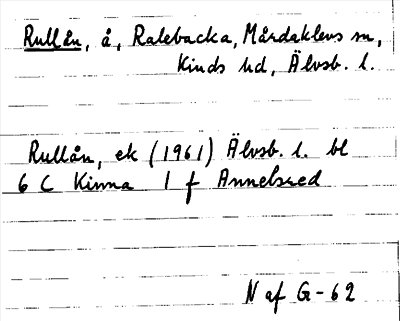 Rullån, å, Ralebacka, Mårdaklevs sn,
Kinds hd, Älvsb. l.
Rullån, ek (1961) Älvsb. l. bl
6 C Kinna 1 f Annelsred
N af G-62